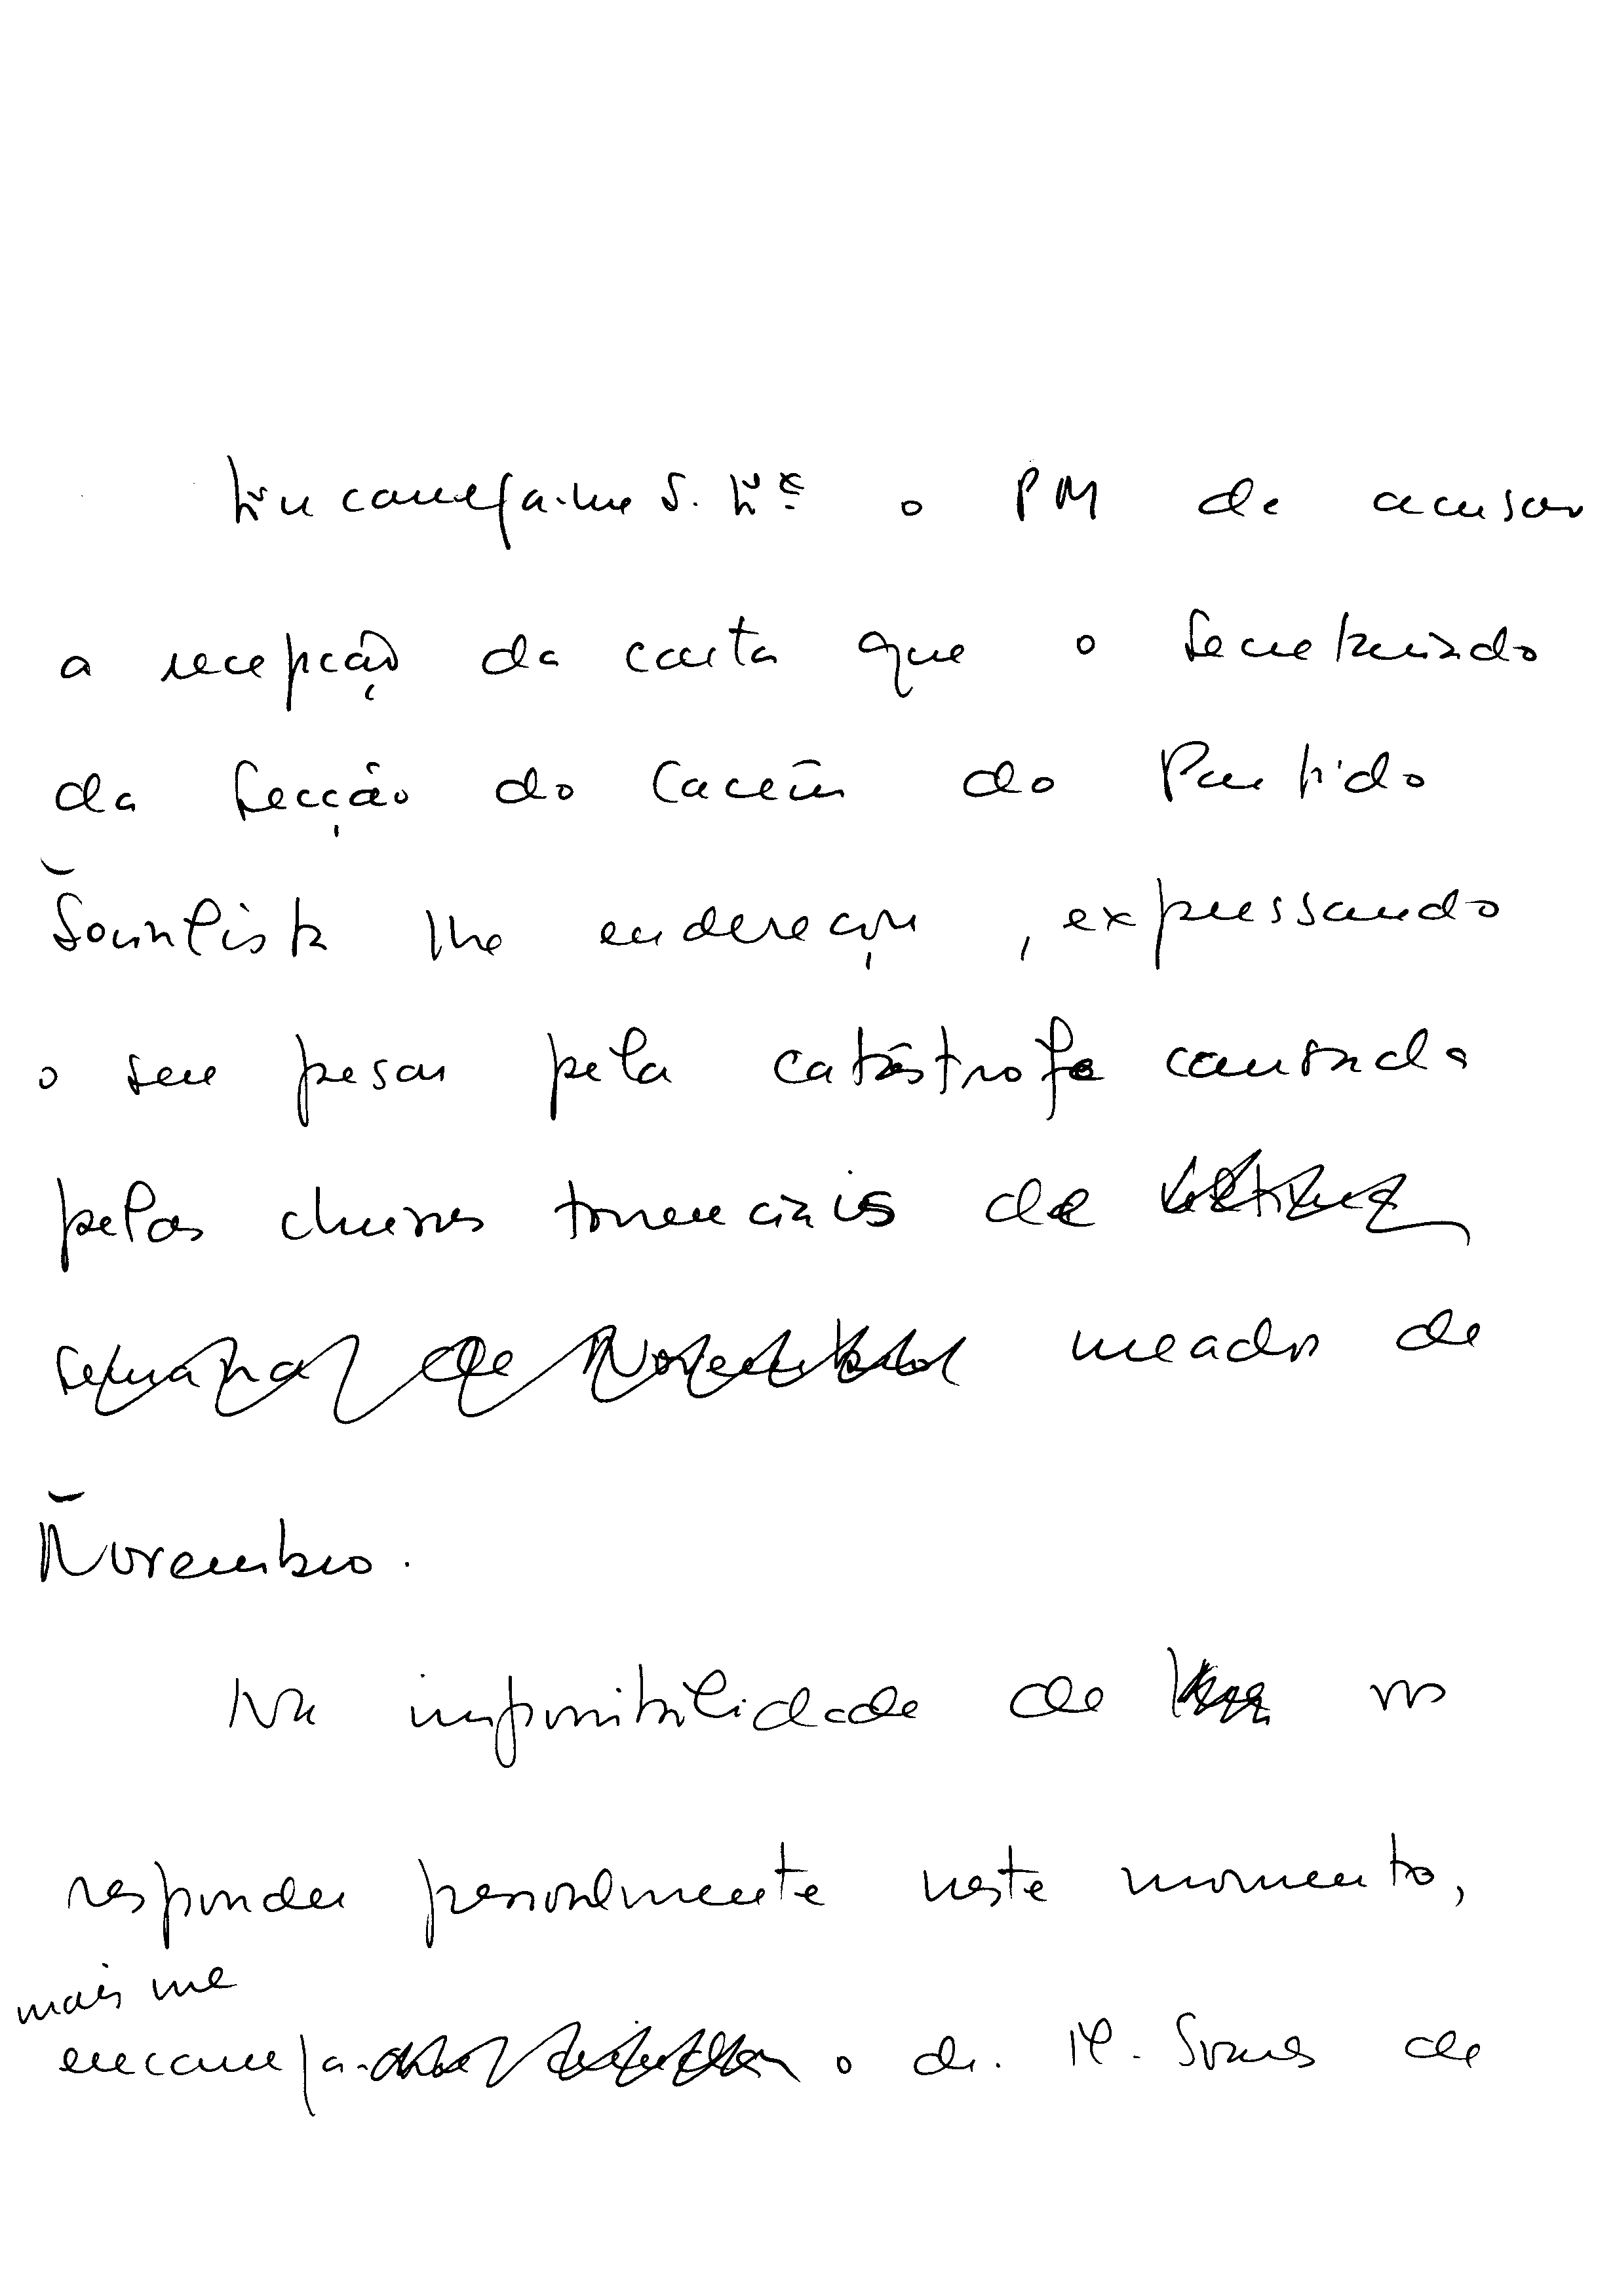 Encarrega-me S. Exª o PM de acusar
a recepção da carta que o Secretariado
da Secção do Cacém do Partido
Socialista lhe endereçou, expressando
o seu pesar pela catástrofe causada
pelas chuvas torrenciais de última
semana de Novembro meados de
Novembro.
Na impossibilidade de vos
responder pessoalmente neste momento,
mais me
encarrega o dr. M. Soares de